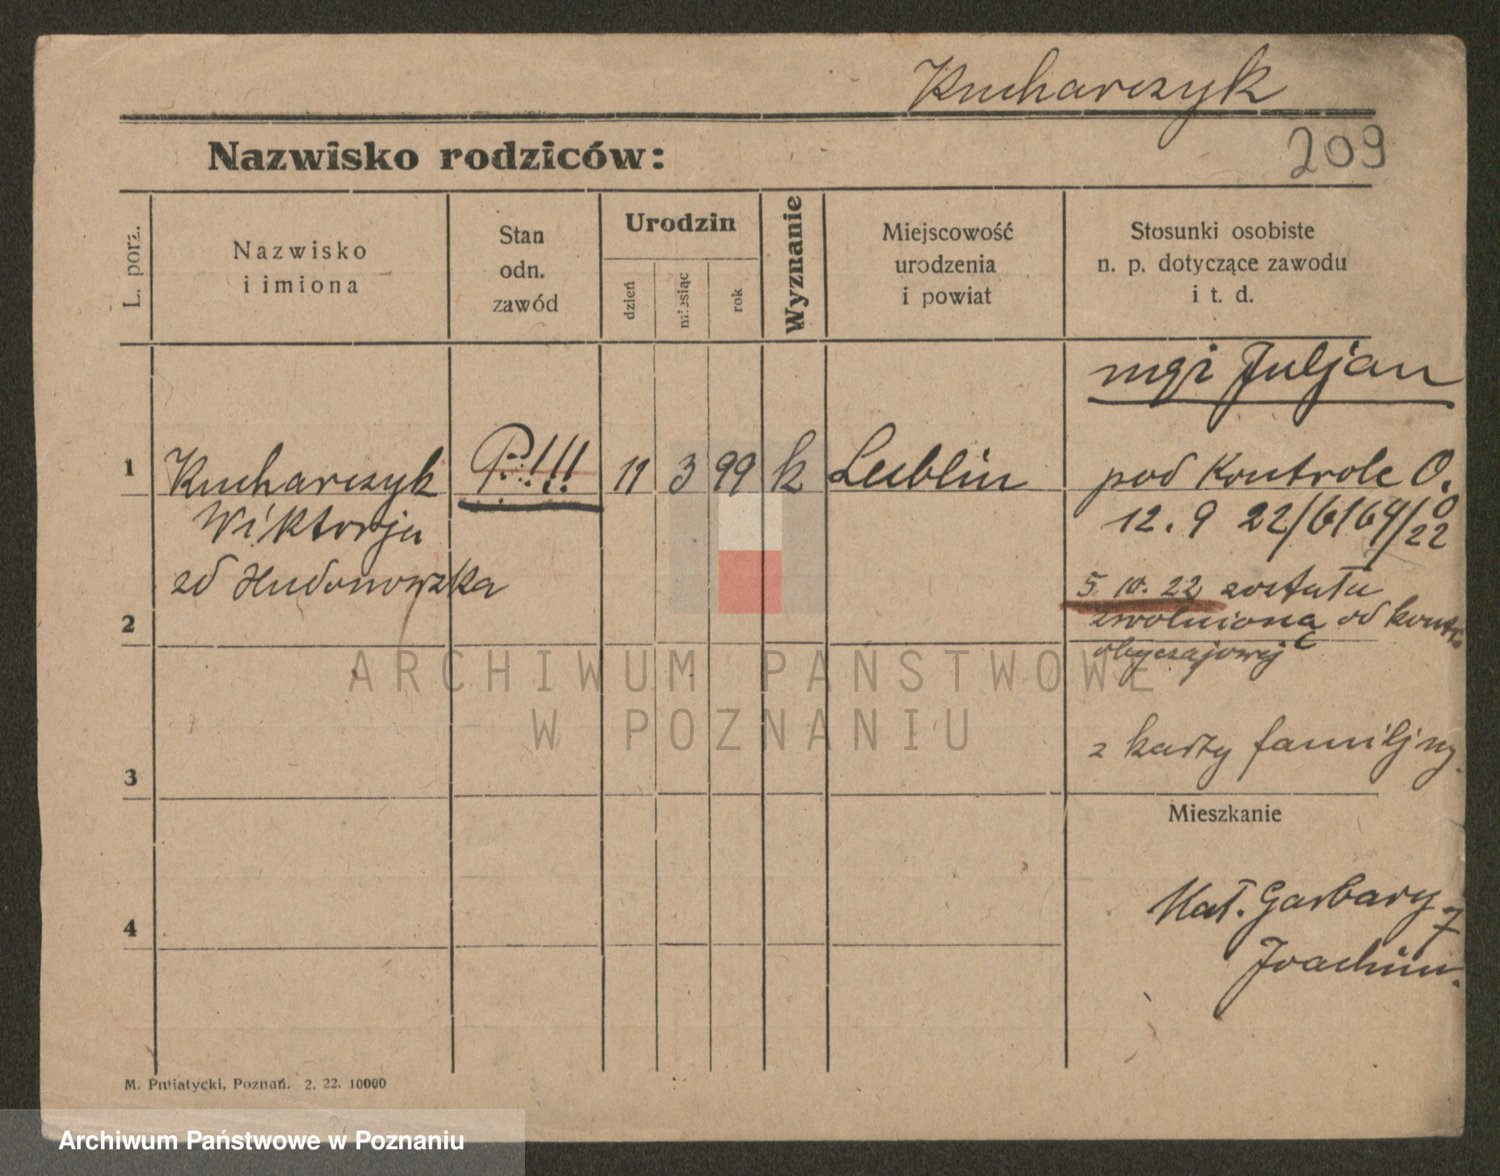 Kucharczyk
209
Nazwisko rodziców:
L. porz.
Nazwisko
i imiona
Stan
odn.
zawód
Urodzin
dzień
miesiąc
rok
Wyznanie
Miejscowość
urodzenia
i powiat
Stosunki osobiste
n. p. dotyczące zawodu
i t. d.
Juljan
1
Kucharczyk
P.!!!
11
3
99
k
Lublin
pod Kontrole O.
Wiktorja
12. 9 22/6164/22
zd Hudonowzka
5 10. 22 została
2
zwolniona od kontr.
obyczajowej
z karty familijny.
3
Mieszkanie
4
Mał. Garbary 7
Joachim.
M. Putiatycki, Poznań. 2. 22. 10000
ARCHIWUM PAŃSTWOWE
W POZNANIU
Archiwum Państwowe w Poznaniu